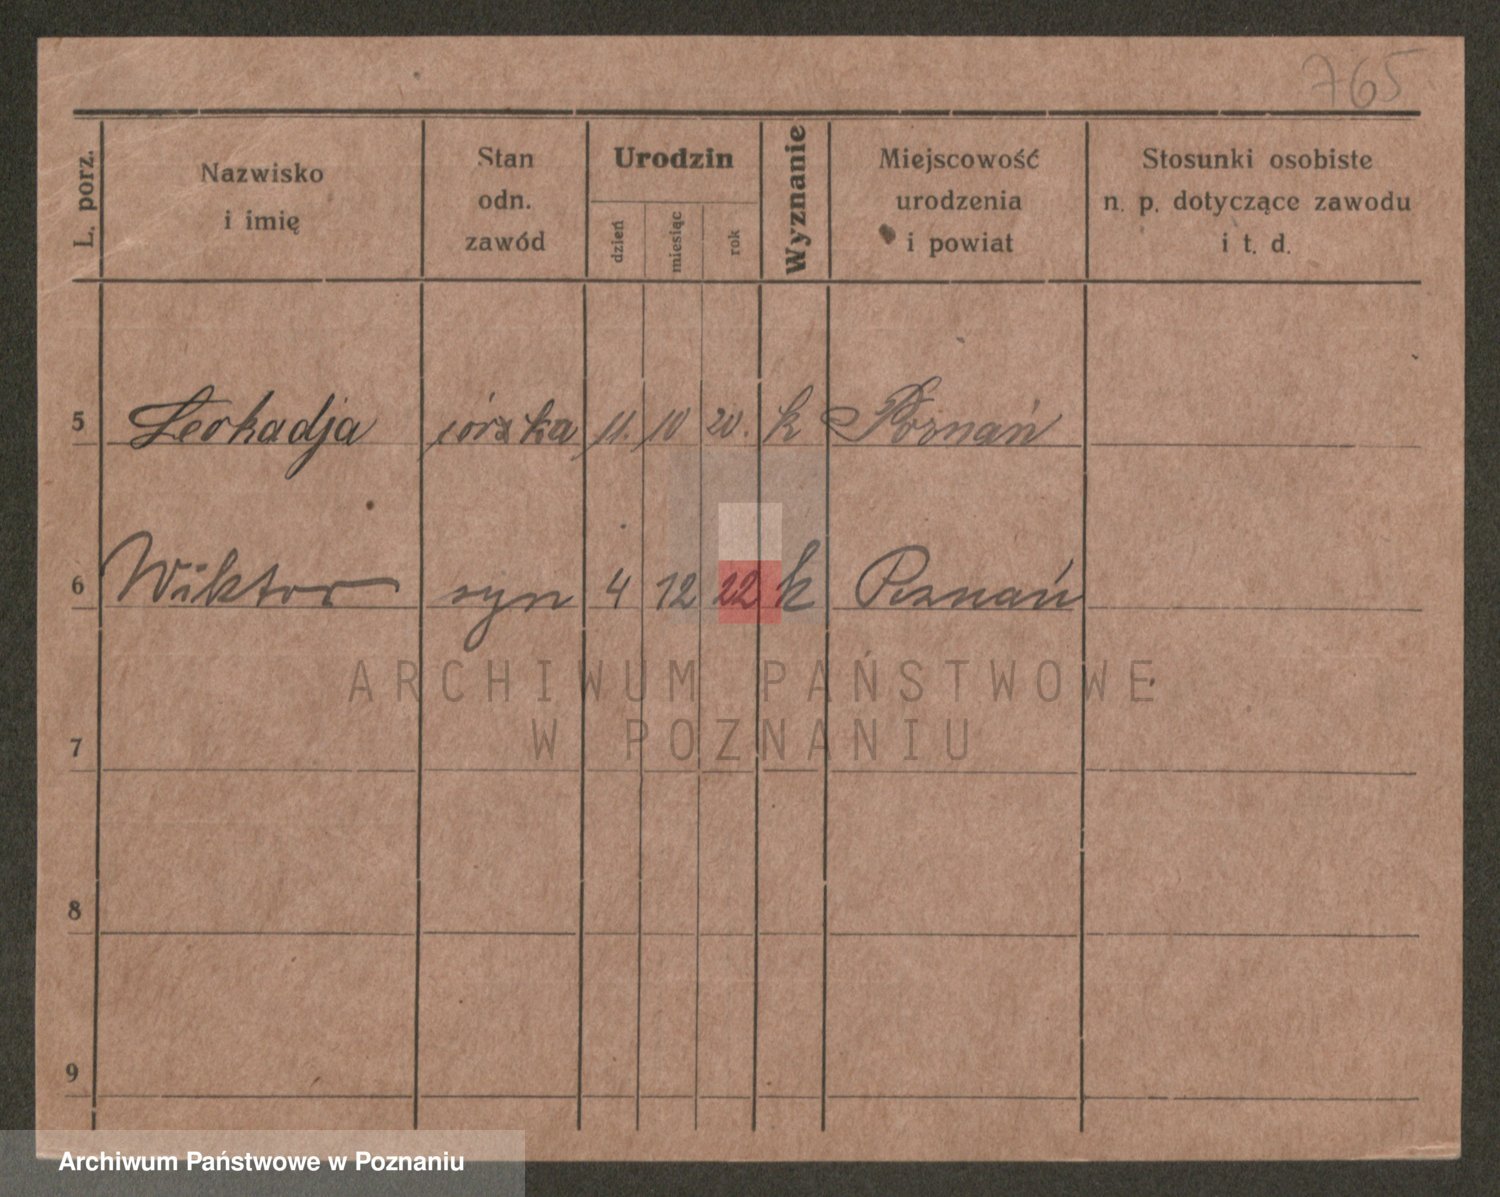 765
L. porz.
Nazwisko
i imię
Stan
odn.
zawód
Urodzin
dzień
miesiąc
rok
Wyznanie
Miejscowość
urodzenia
i powiat
Stosunki osobiste
n. p. dotyczące zawodu
i t. d.
5 Leokadja córka 11. 10 20. k Poznań
6 Wiktor syn 4 12 22 k Poznań
ARCHIWUM PAŃSTWOWE
W POZNANIU
7
8
9
Archiwum Państwowe w Poznaniu